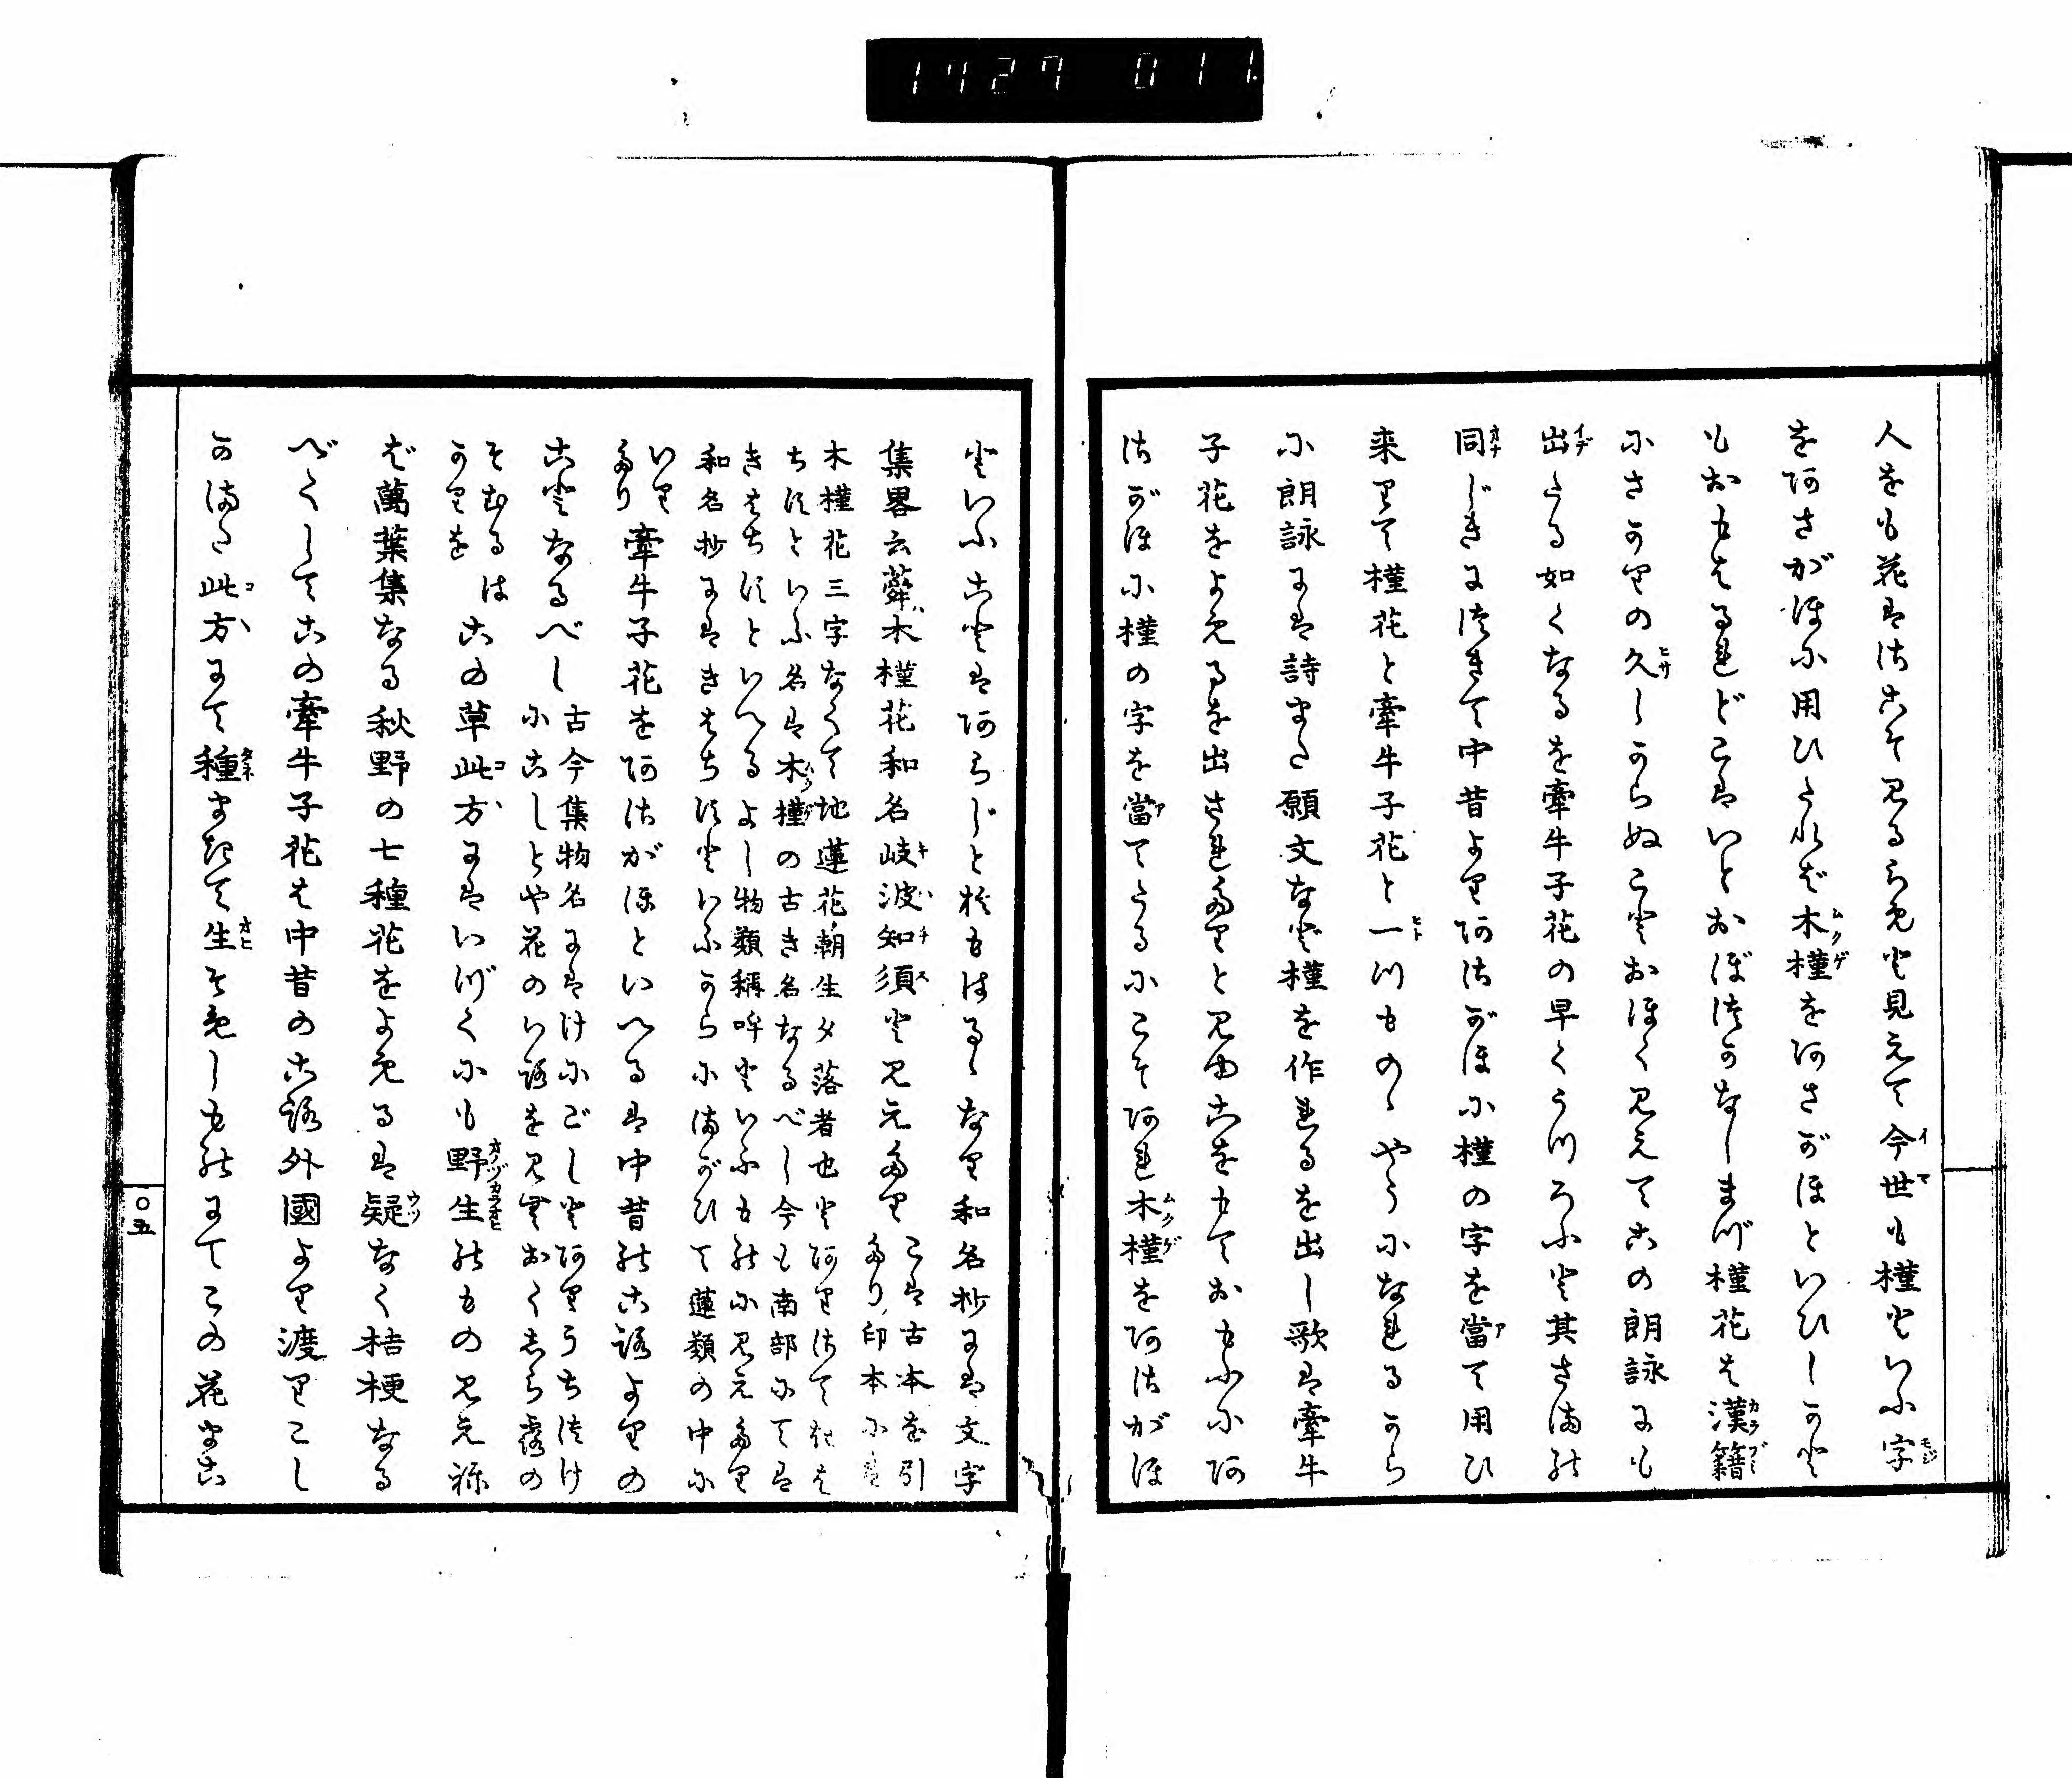 1727 011
人をも花はさこそ見るらめと見えて今世も槿といふ字
をあさがほに用ひたれば木槿をあさがほといひしかと
もおもはるれどこはいとおぼつかなしまづ槿花は漢籍
にさかりの久しからぬことおほく見えてこの朗詠にも
出たる如くなるを牽牛子花の早くうつろふと其さまの
同じきにつきて中昔よりあさがほに槿の字を當て用ひ
来りて槿花と牽牛子花と一つものゝやうになれるから
に朗詠には詩また願文など槿を作れるを出し歌は牽牛
子花をよめるを出されたりと見ゆこをもておもふにあ
さがほに槿の字を當てたるにこそあれ木槿をあさがほ
といふことはあらじと思はるゝなり和名抄には文字
集畧云蕣木槿花和名岐波知須と見えたり こは古本を引
たり印本に
木槿花三字なくて地蓮花朝生夕落者也とありさてきは
ちすといふ名は木槿の古き名なるべし今も南部にては
きはちすといへるよし物類稱呼といふものに見えたり
和名抄にはきはちすといふからにまがひて蓮類の中に
いり
たり 牽牛子花をあさがほといへるは中昔のころよりの
ことなるべし 古今集物名にはけにごしとありうちつけ
にこしとや花のいろを見むおくしら露の
そむるは
かりを この草此方にはいづくにも野生のもの見えね
ば萬葉集なる秋野の七種花をよめるは疑なく桔梗なる
べくしてこの牽牛子花は中昔のころ外國より渡りこし
かまた此方にて種まきて生そめしものにてこの花まこ
〇五